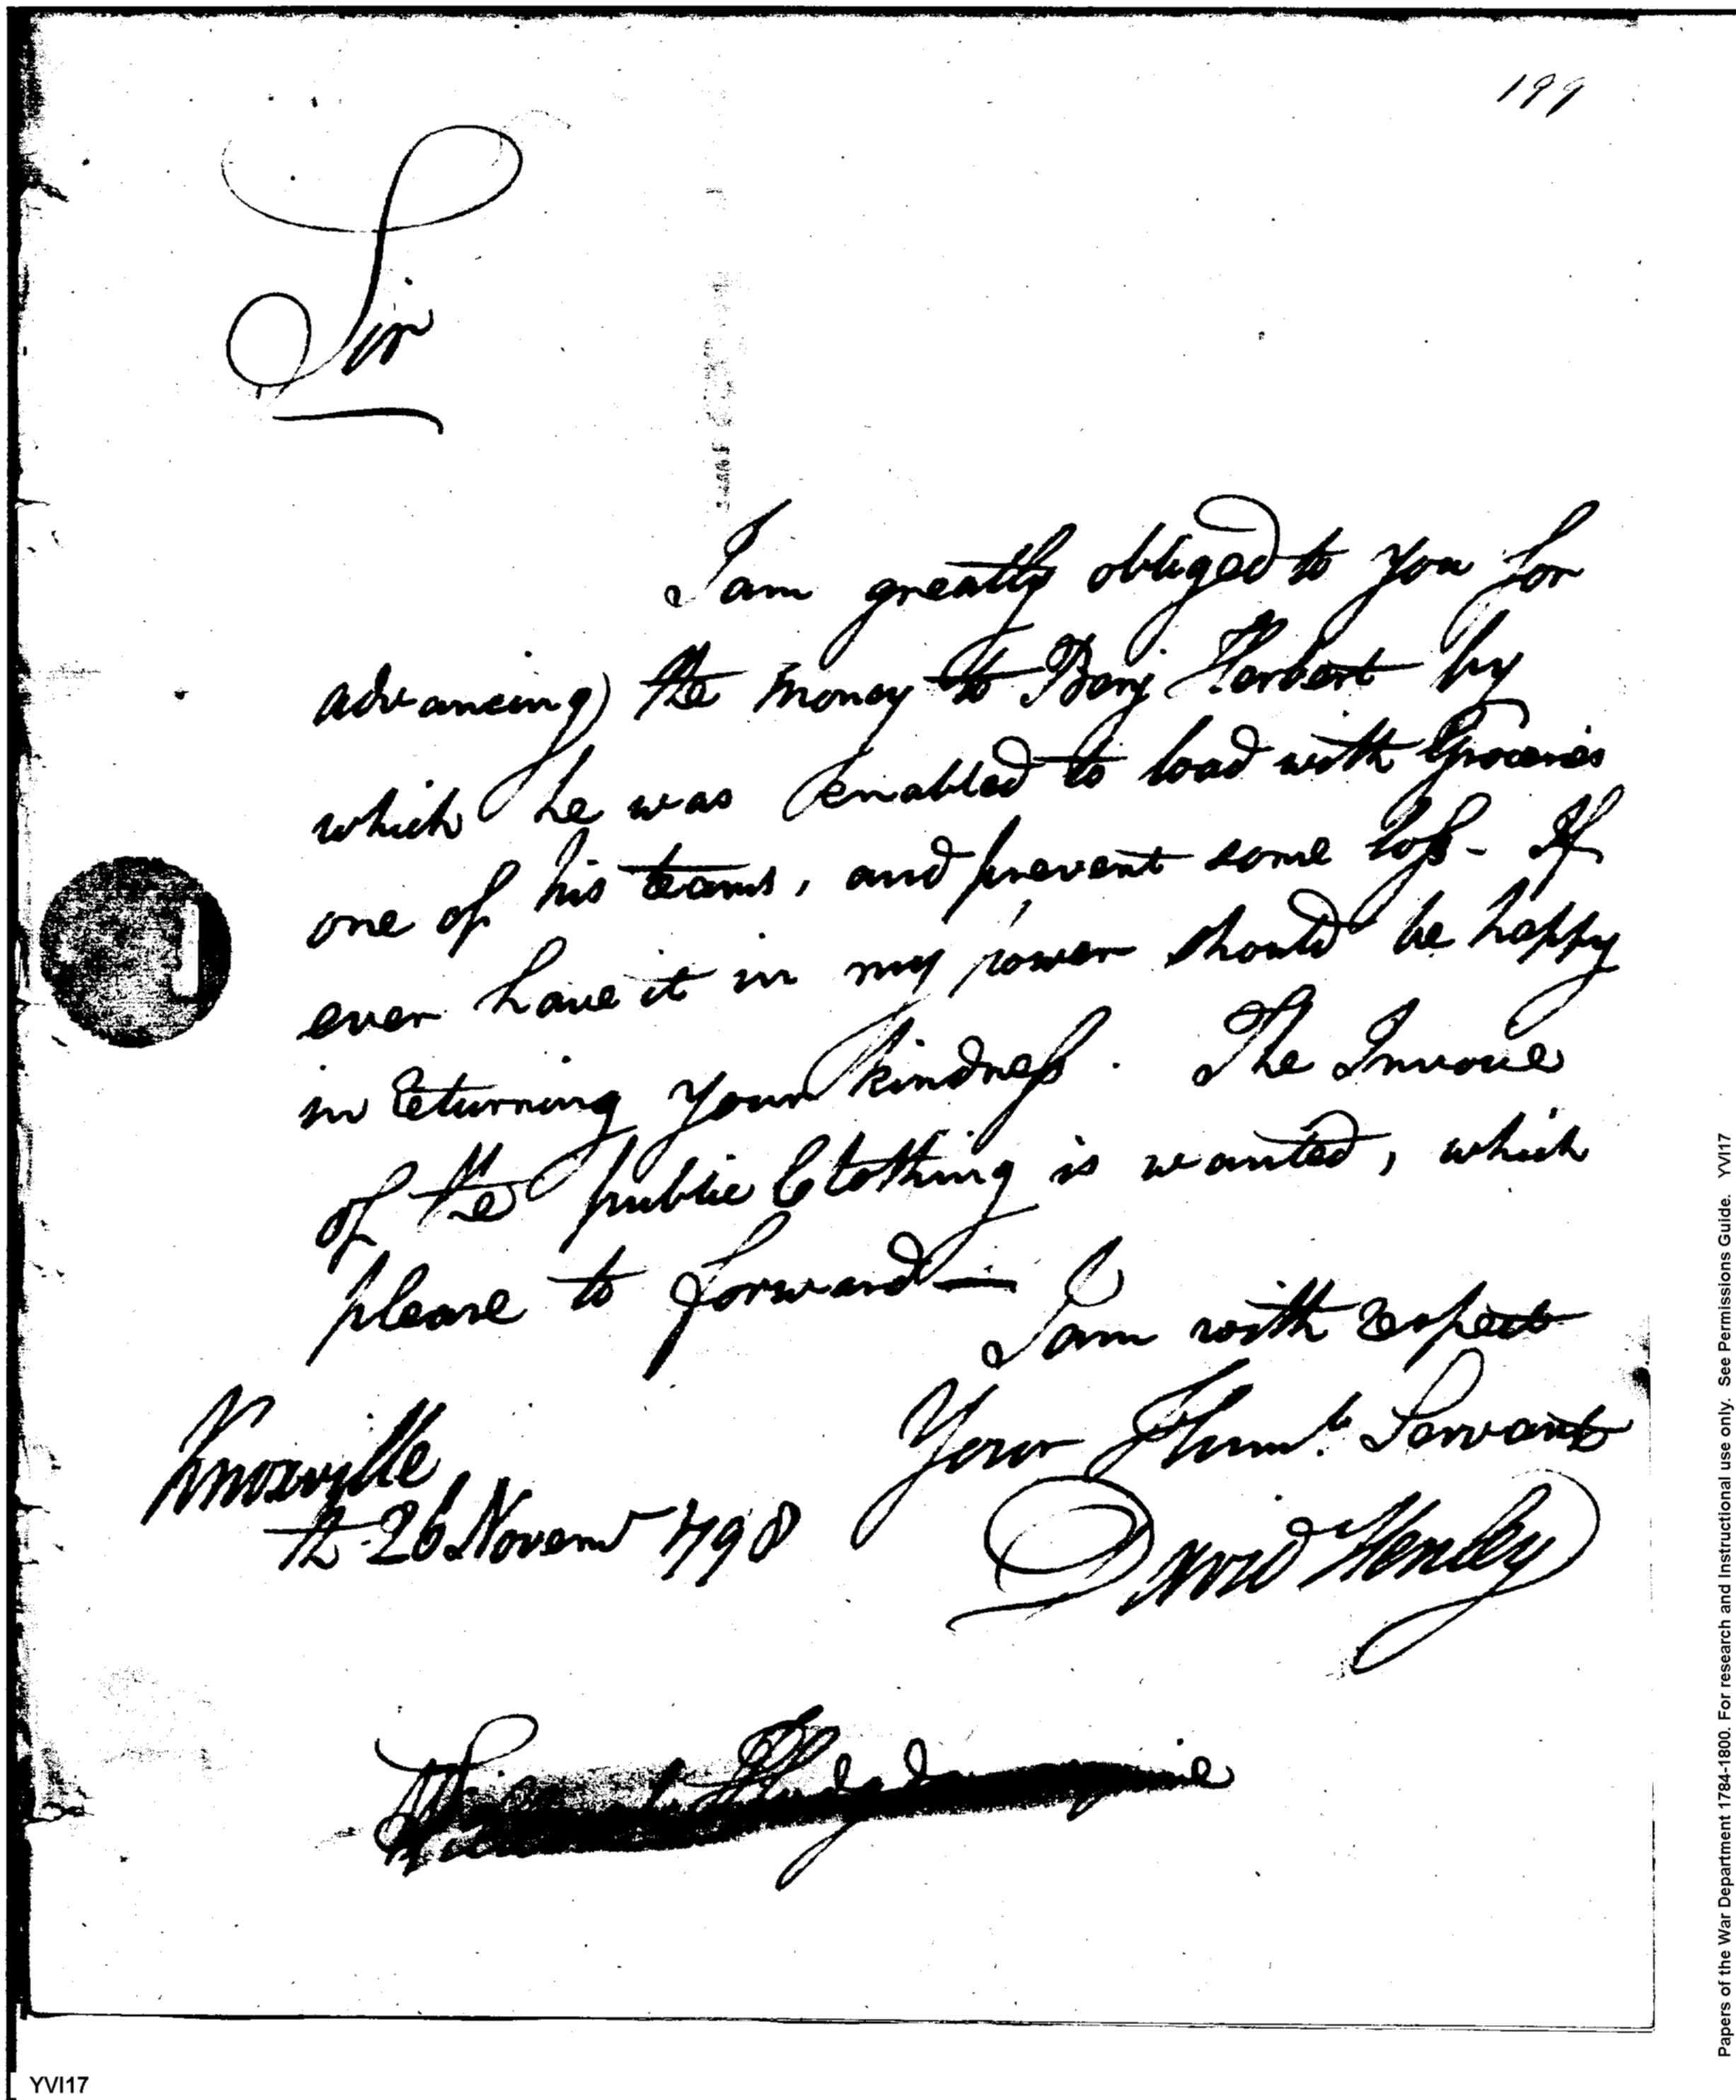 199
Sir
I am greatly obliged to you for
advancing the money to Benj Herbert by
which he was enabled to load with Groceries
one of his teams, and prevent some loss - If
ever have it in my power should be happy
in returning your kindness. The Invoice
of the public Clothing is wanted, which
please to forward —
I am with respect
Your Humb. Servant
Knoxville
26 Novem 798
David Henley
Papers of the War Department 1784-1800. For research and Instructional use only. See Permissions Guide. YVI17
YVI17